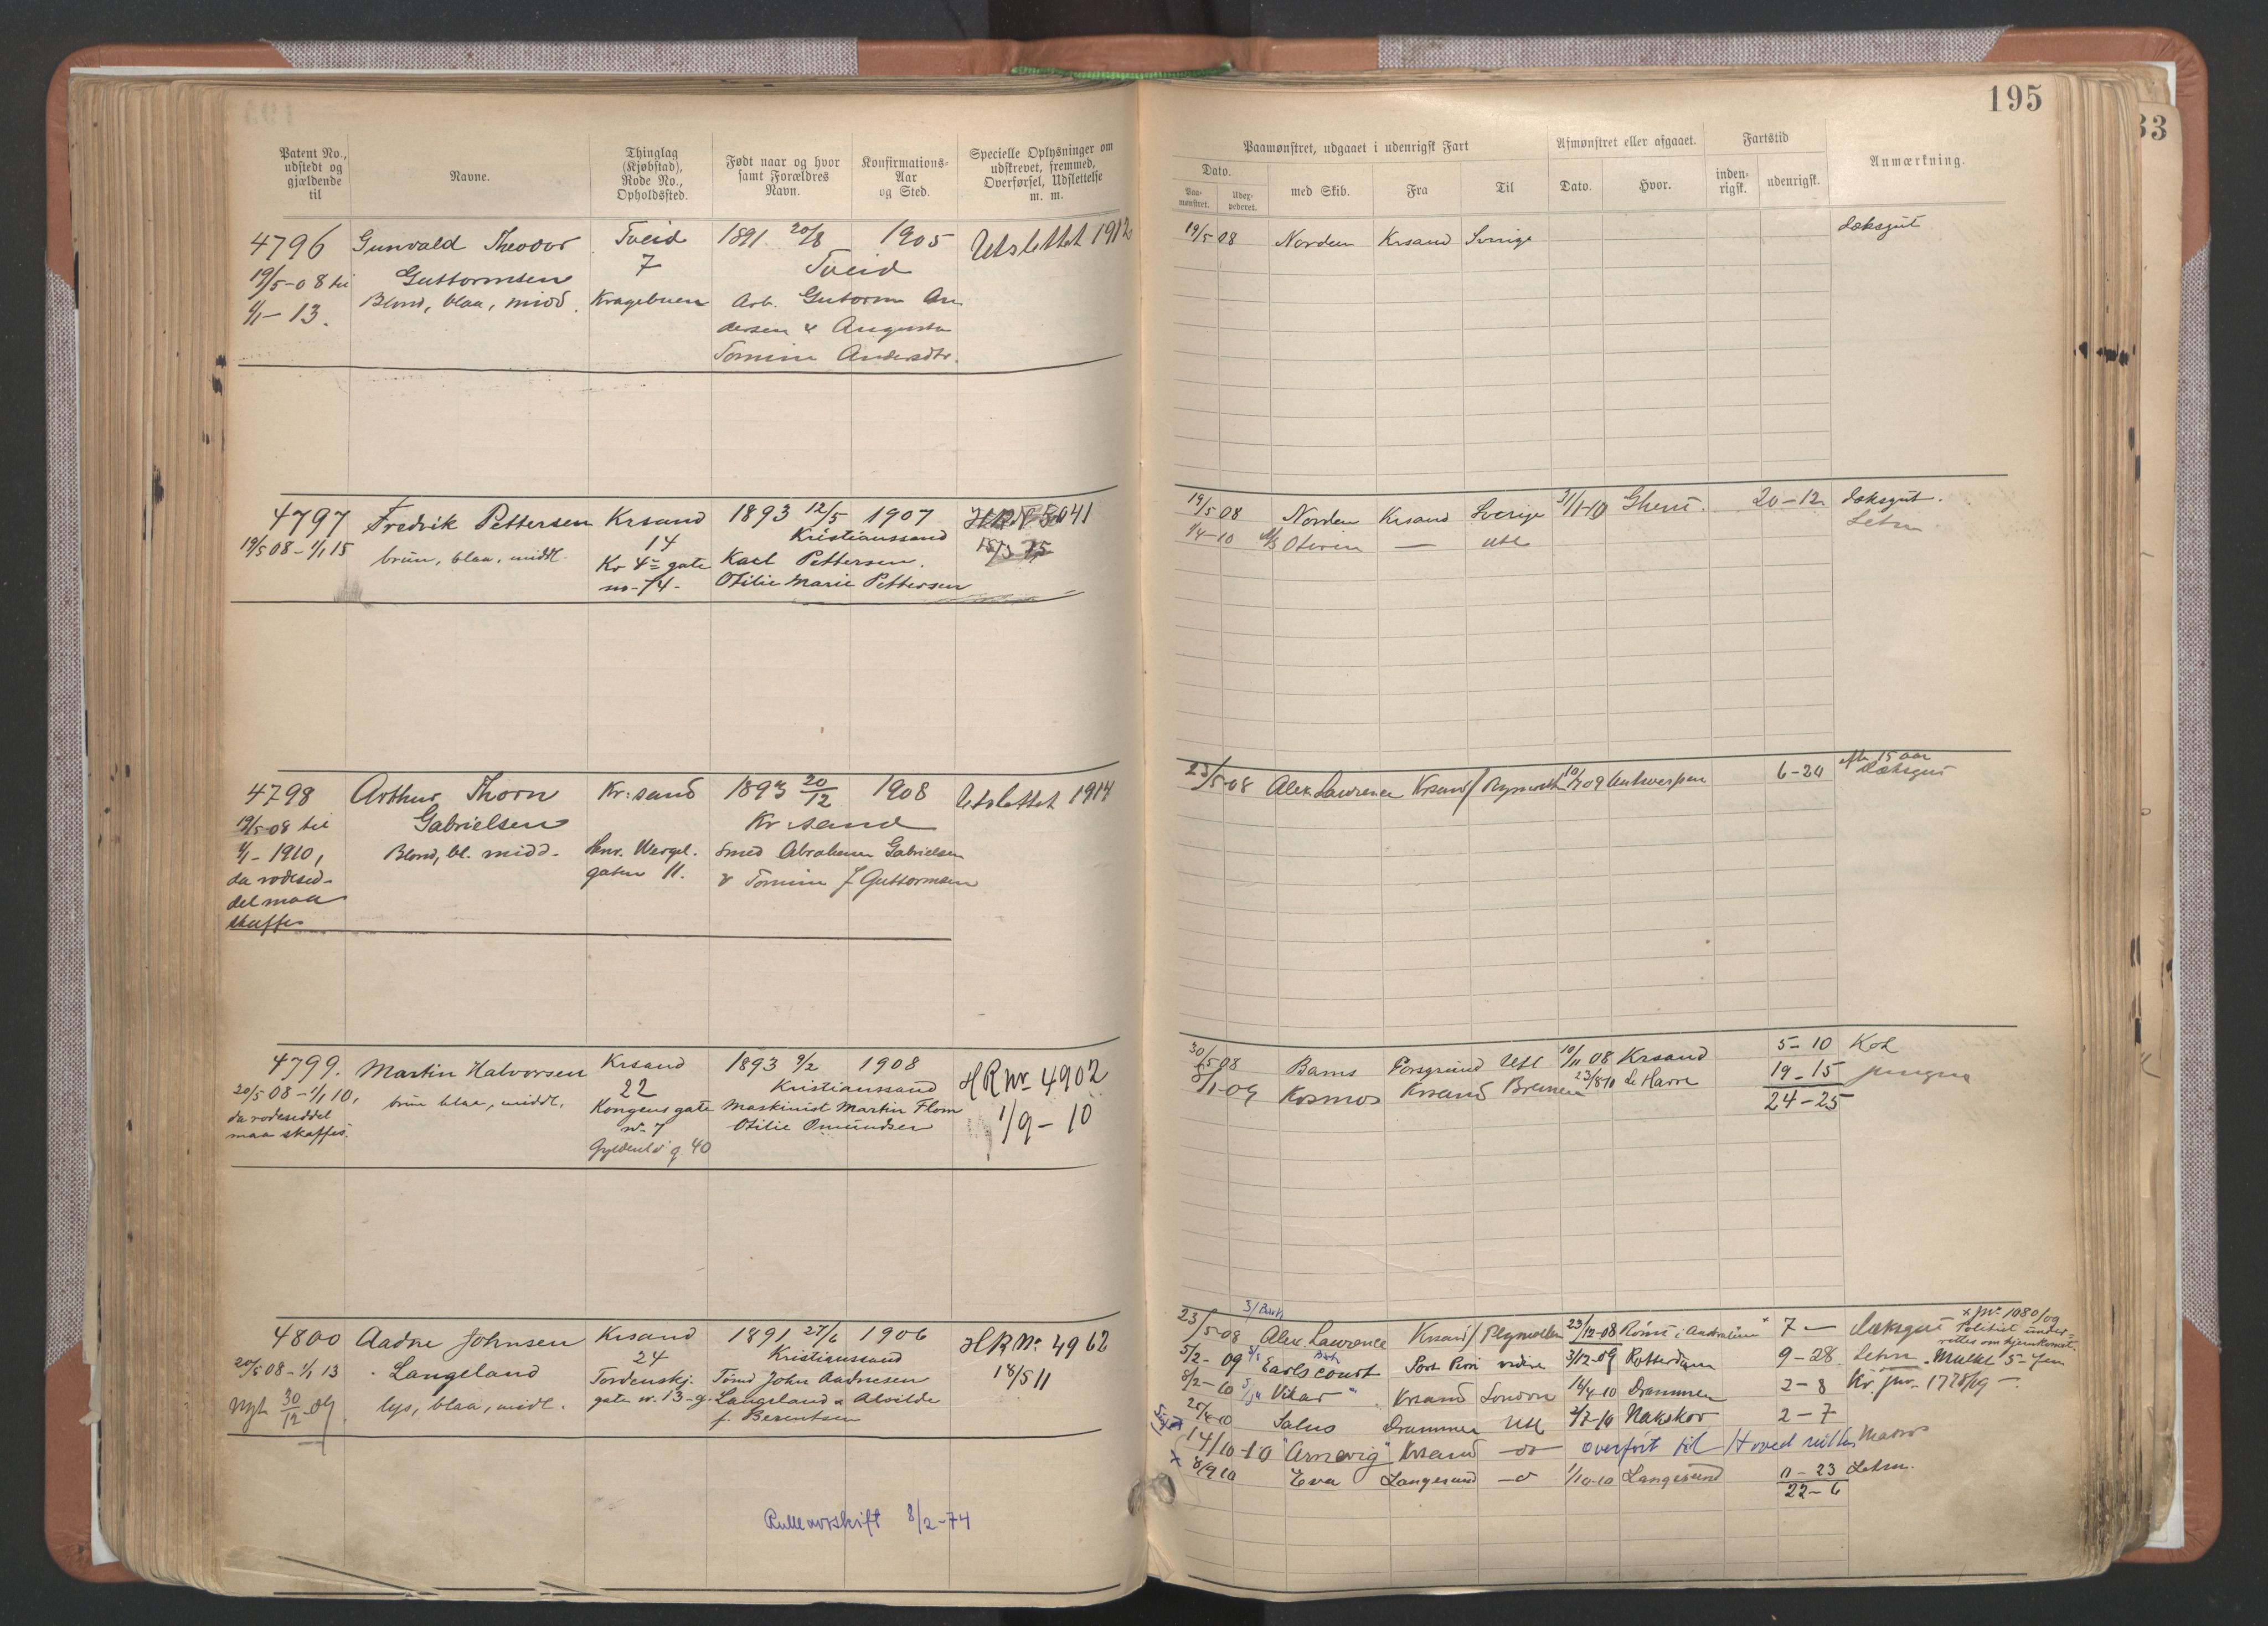 195
33
Patent No., udstedt og gjældende til
Navne.
Thinglag (Kjøbstad), Rode No., Opholdssted.
Født naar og hvor samt Forældres Navn.
Konfirmations-Aar og Sted.
Specielle Oplysninger om udskrevet, fremmed, Overførsel, Udslettelse m. m.
Paamønstret, udgaaet i udenrigsk Fart
Dato.
Paa-mønstret.
Udex-pederet.
med Skib.
Fra
Til
Afmønstret eller afgaaet.
Dato.
Hvor.
Fartstid
inden-rigsk.
udenrigsk.
Anmærkning.
4796 Gunvald Theodor Tveid 1891 20/8 1905 Utslettet 1912
19/5-08 til Guttormsen 7 Tveid
1/1-13. Blond, blaa, midd. Kragebuen Arb. Gutorm An
dersen & Augusta
Tomine Andersdtr.
19/5 08 Norden Krsand Sverige dæksgut
4797 Fredrik Pettersen Krsand 1893 12/5 1907 5041
19/5 08-1/1 15 brun, blaa, middl. 14 Kristianssand 15/3 15
Kr 4de gate Karl Pettersen.
no-74- Otilie Marie Pettersen
19/5 08 Norden Krsand Sverige 31/1-10 Ghent. 20-12 dæksgut.
1/4-10 Oterin — Utl Letm
4798 Arthur Thorn Kr:sand 1893 20/12 1908 Utslettet 1914
19/5-08 til Gabrielsen Kr:sand
1/1-1910, Blond, bl. midd- Henr. Wergel. Smed Abraham Gabrielsen
da rodesed- gaten 11. & Tomine f Guttormsen
del maa
skaffes
23/5-08 Alex. Lawrence Krsand/Plymouth 10/7 09 Antwerpen 6-20 efter 15 aar
Dæksgut
4799. Martin Halvorsen Krsand 1893 9/2 1908 HR Nr 4902
20/5 08-1/1 10, brun blaa, middl. 22 Kristianssand 1/9-10
da rodeseddel Kongens gate Maskinist Martin Flom
maa skaffes. nr-7 Otilie Omundsen
Gyldenlø g. 40
30/5 08 Bams Porsgrund Utl 10/11 08 Krsand 5-10 Kok
8/1-09 Kosmos Krsand Bremen 23/8 10 Le Havre 19-15 jungm
24-25
4800 Aadne Johnsen Krsand 1891 27/6 1906 HR Nr 4962
20/5 08-1/1 13 Langeland 24 Kristianssand 18/5 11
Nyt 30/12-09 lys, blaa, midl. Tordenskj. Tømd John Aadnesen
gate nr. 13-g. Langeland & Alvilde
f. Berentsen
3/ Bark
23/5-08 Alex. Lawrence Krsand/Plymouth 23/12-08 Rømt i Australien x 7— Dæksgut x Jnr 1080/09
Politiet under-
rettes om hjemkomst.
5/2-09 Earlscourt Bark Port Pirri videre 3/12-09 Rotterdam 9-28 Letm. Mulkt 5-
8/2-10 Vikar " Krsand London 14/4-10 Drammen 2-8 Kr. jnr. 1728/09
25/4-10 Salus Drammen Utl 2/7-10 Nakskov 2-7
14/10-10 "Arnevig" Krsand —o— overført til Hovedrullen Matros
x 8/9 10 Eva Langesund —o 1/10-10 Langesund 0-23 Letm.
22-6
Rulleavskrift 8/2-74